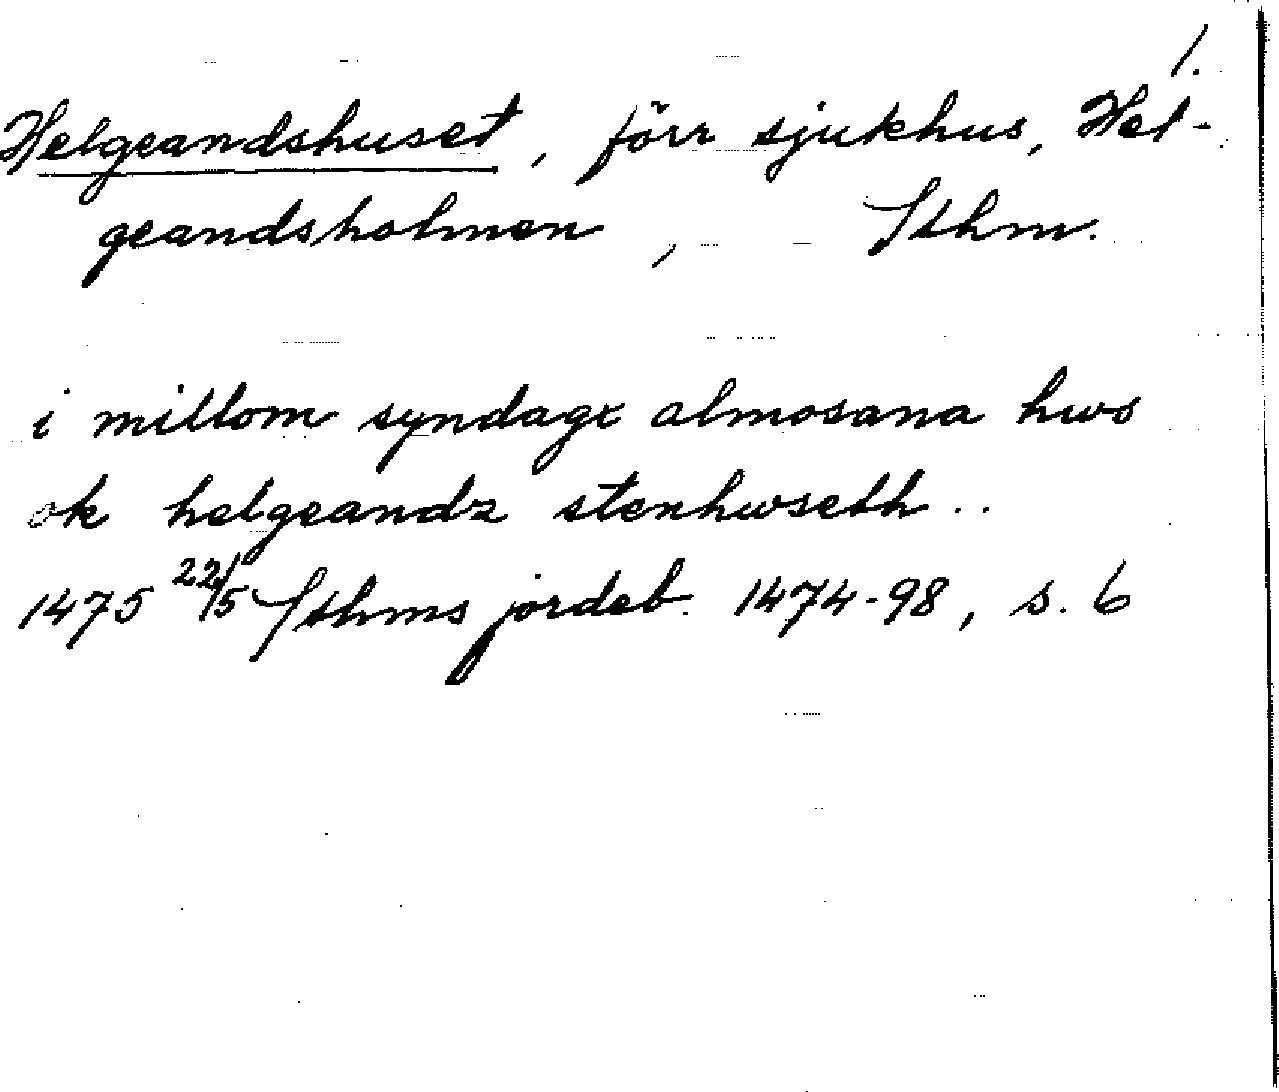 1.
Helgeandshuset, förr sjukhus, Hel-
geandsholmen, Sthm.
i millom syndagx almosana hws
ok helgeandz stenhwseth ..
1475 22/5 Sthms jordeb. 1474-98, s. 6